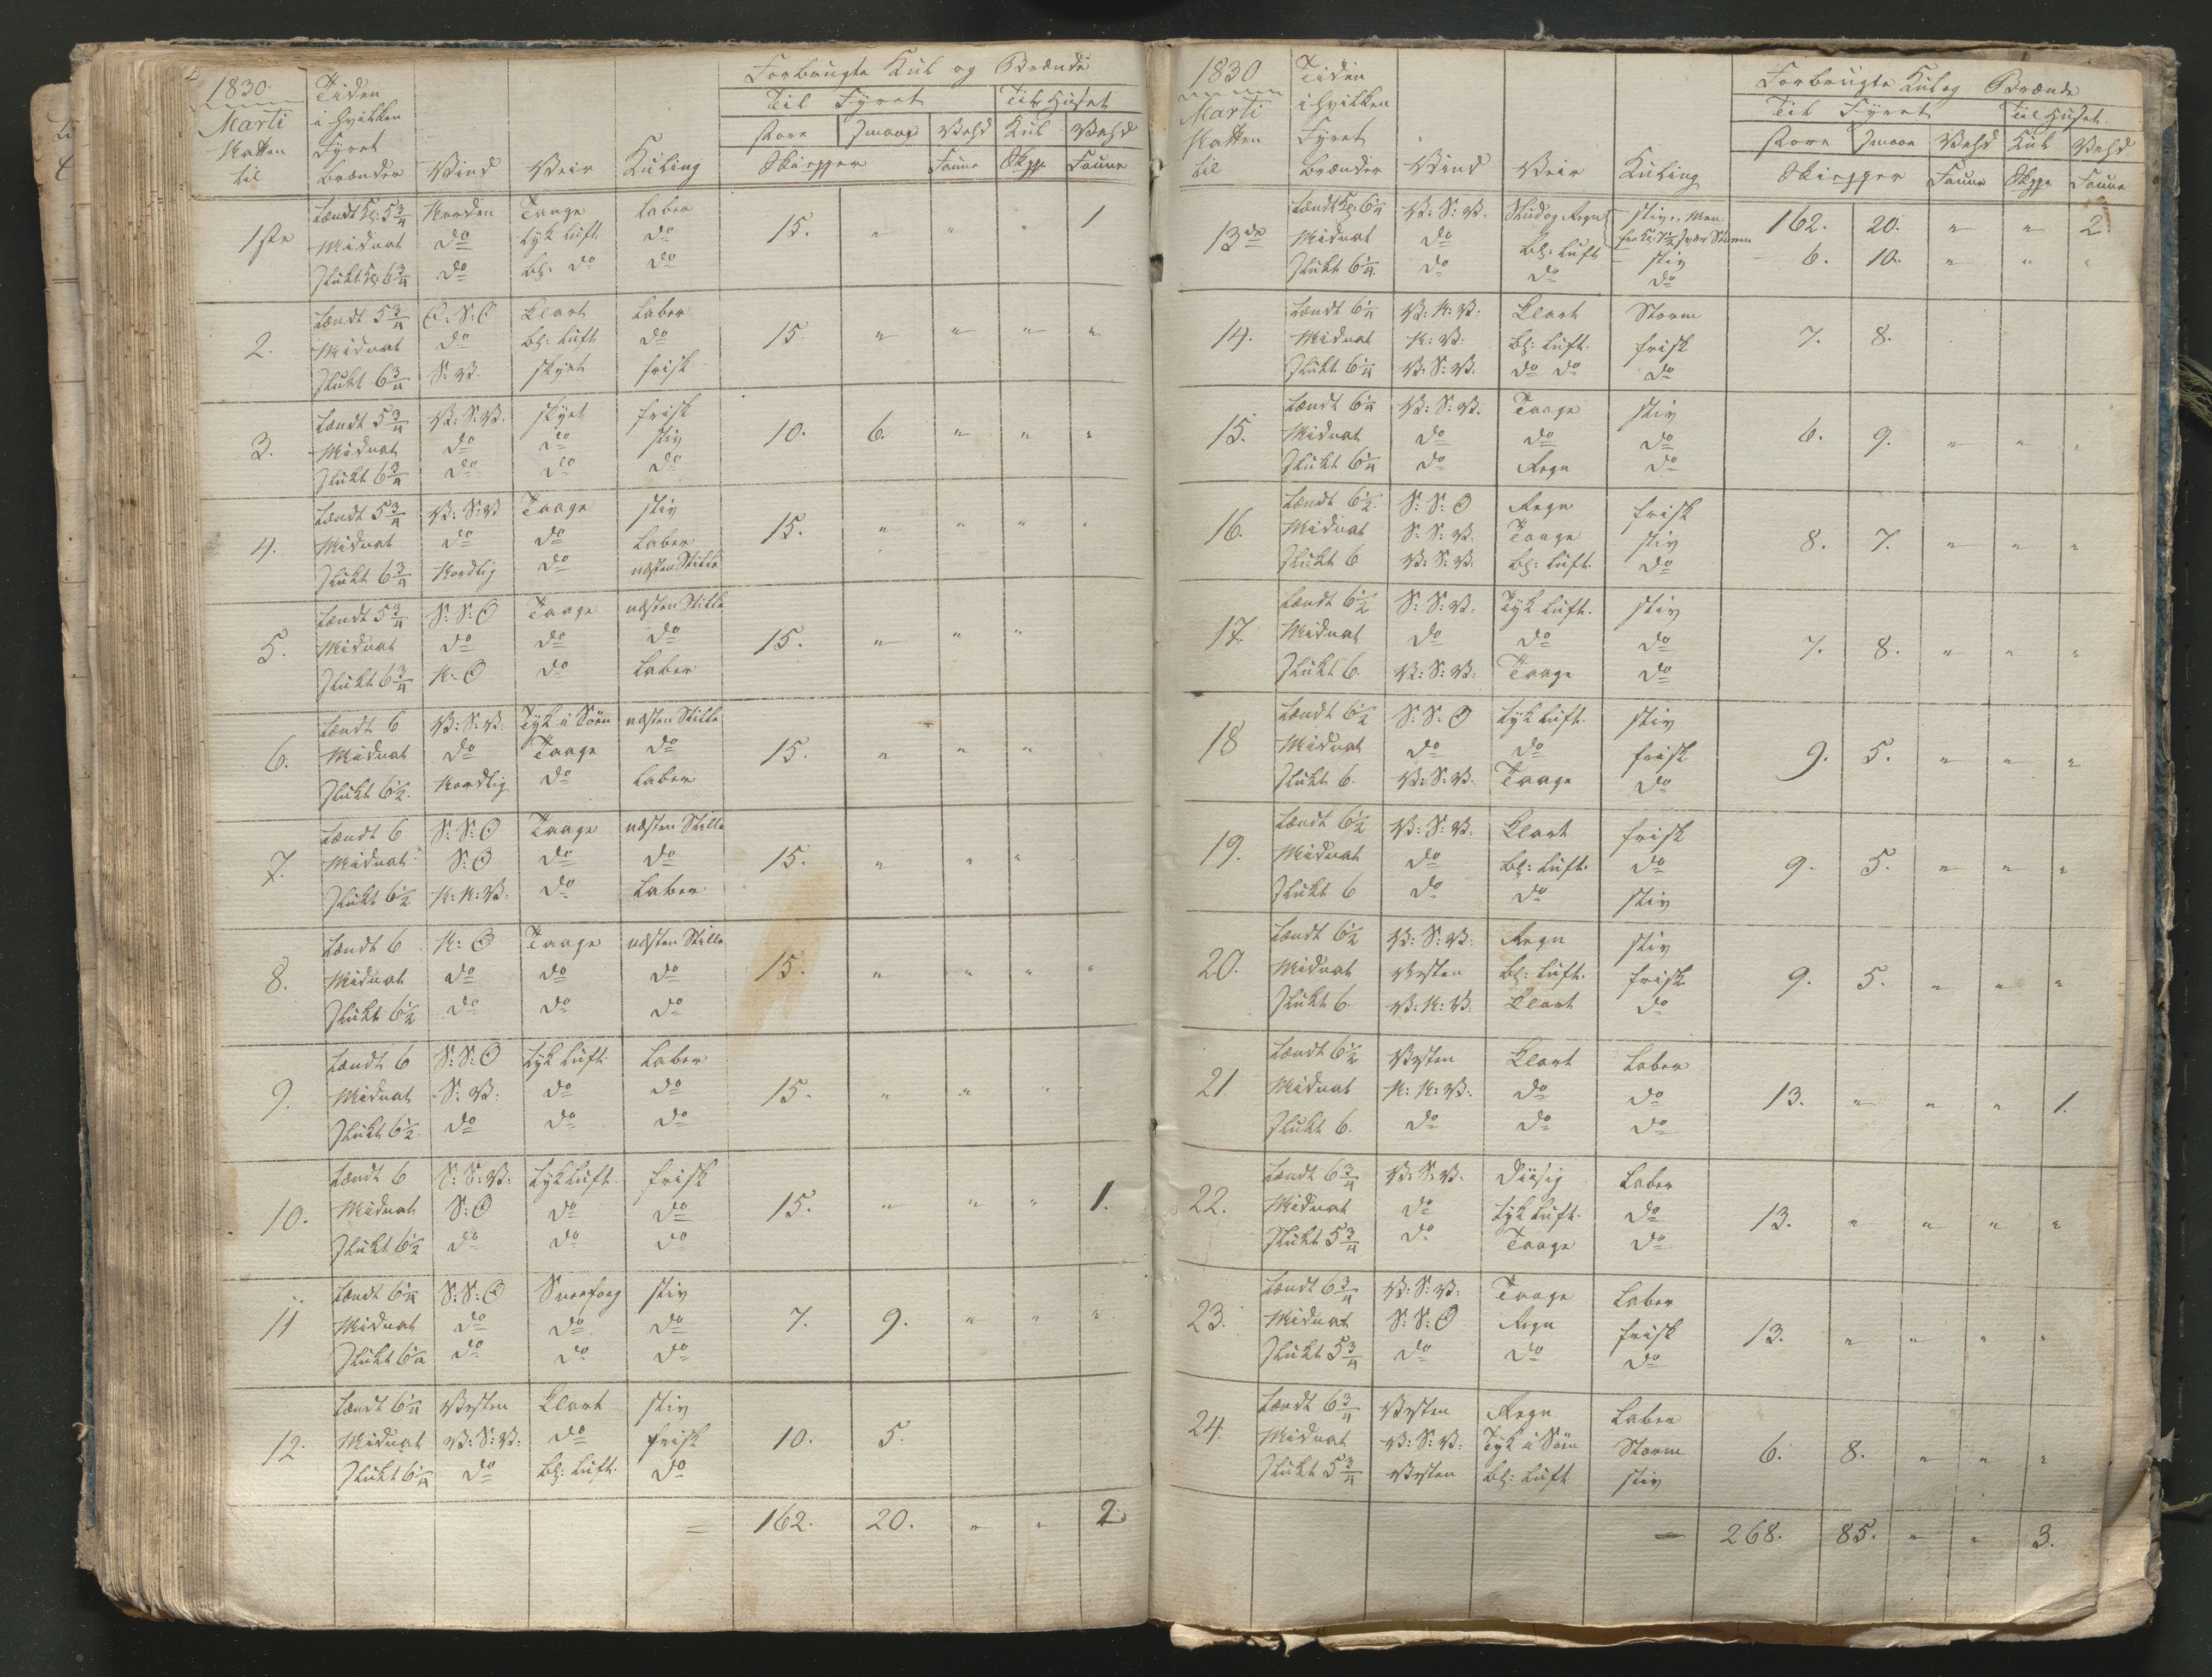 1830.
Marti
Natten
til
Tiden
i hvilken
Fyret
brænder
Vind
Veir
Kuling
Forbrugte Kul og Brænde
Til Fyret
Til Huset
store
smaae
Vehd
Kul
Vehd
Skiepper
Faune
Skpp
Faune
1ste
tændt Kl: 5 3/4 Norden Taage laber
Midnat do tyk luft do
slukt Kl: 6 3/4 do bz: do do
15. " " " 1
2.
tændt 5 3/4 O: S: O Klart laber
Midnat do bz: luft do
slukt 6 3/4 S: V. skyet frisk
15 " " " "
3.
tændt 5 3/4 V: S: V. skyet frisk
Midnat do do stiv
slukt 6 3/4 do do do
10. 6. " " "
4.
tændt 5 3/4 V: S: V Taage stiv
Midnat do do laber
slukt 6 3/4 Nordlig do næsten Stille
15. " " " "
5.
tændt 5 3/4 S: S: O Taage næsten Stille
Midnat do do do
slukt 6 3/4 N: O do laber
15. " " "
6.
tændt 6 V: S: V: Tyk i Søen næsten Stille
Midnat do Taage do
slukt 6 1/2. Nordlig do laber
15. " " "
7.
tændt 6 S: S: O Taage næsten Stille
Midnat S: O do do
slukt 6 1/2 N: N: V: do laber
15. " " "
8.
tændt 6 N: O Taage næsten Stille
Midnat do do do
slukt 6 1/2 do do do
15. " " " "
9.
tændt 6 S: S: O tyk luft laber
Midnat S: V: do do
slukt 6 1/2. do do do
15. " " " "
10.
tændt 6 S: S: V: tyk luft. frisk
Midnat S: O do do
slukt 6 1/2 do do do
15. " " " 1.
11
tændt 6 1/4 S: S: O Sneefoeg stiv
Midnat do do do
slukt 6 1/4 do do do
7. 9. " " "
12.
tændt 6 1/4 Vesten Klart stiv
Midnat V: S: V: do frisk
slukt 6 1/4 do bz: luft. do
10. 5.
= 162. 20. " " 2.
1830
Marti
Natten
til
Tiden
i hvilken
Fyret
brænder
Vind
Veir
Kuling
Forbrugte Kul og Brænde
Til Fyret
Til Huset.
store
smaae
Vehd
Kul
Vehd.
Skiepper
Faune
Skppe
Faune
13de
tændt Kl: 6 1/4 V: S: V. Slud og Regn stiv, men
Midnat do bz: luft fra Kl: 7 1/2 svær Storm
stiv
slukt 6 1/4 do do do
162. 20. " " 2
6. 10. " " "
14.
tændt 6 1/4 V: N: V: Klart Storm
Midnat N: V: bz: luft. frisk
slukt 6 1/4 V: S: V: do do do
7. 8.
15.
tændt 6 1/4 V: S: V. Taage stiv
Midnat do do do
slukt 6 1/4 do Regn do
6. 9. " " "
16.
tændt 6 1/2. S: S: O Regn frisk
Midnat S: S: V: Taage stiv
slukt 6 V: S: V: bz: luft. do
8. 7. " " "
17.
tændt 6 1/2 S: S: V: Tyk luft. stiv
Midnat do do do
slukt 6. V: S: V: Taage do
7. 8. " " "
18
tændt 6 1/2 S: S: O tyk luft. stiv
Midnat do do frisk
slukt 6. V: S: V. Taage do
9. 5. " " "
19.
tændt 6 1/2 V: S: V: Klart frisk
Midnat do bz: luft. do
slukt 6 do do stiv
9. 5. " " "
20.
tændt 6 1/2 V: S: V: Regn stiv
Midnat Vesten bz: luft. frisk
slukt 6. V: N: V. Klart do
9. 5. " " "
21.
tændt 6 1/2 Vesten Klart laber
Midnat N: N: V: do do
slukt 6. do do do
13. " " " 1.
22.
tændt 6 3/4 V: S: V. Diisig laber
Midnat do tyk luft. do
slukt 5 3/4 do Taage do
13. " " " "
23.
tændt 6 3/4 V: S: V: Taage laber
Midnat S: S: O Regn frisk
slukt 5 3/4 do do do
13. " " " "
24.
tændt 6 3/4 Vesten Regn laber
Midnat V: S: V: Tyk i Søen Storm
slukt 5 3/4 Vesten bz: luft stiv
6. 8. " " "
= 268. 85. " " 3.